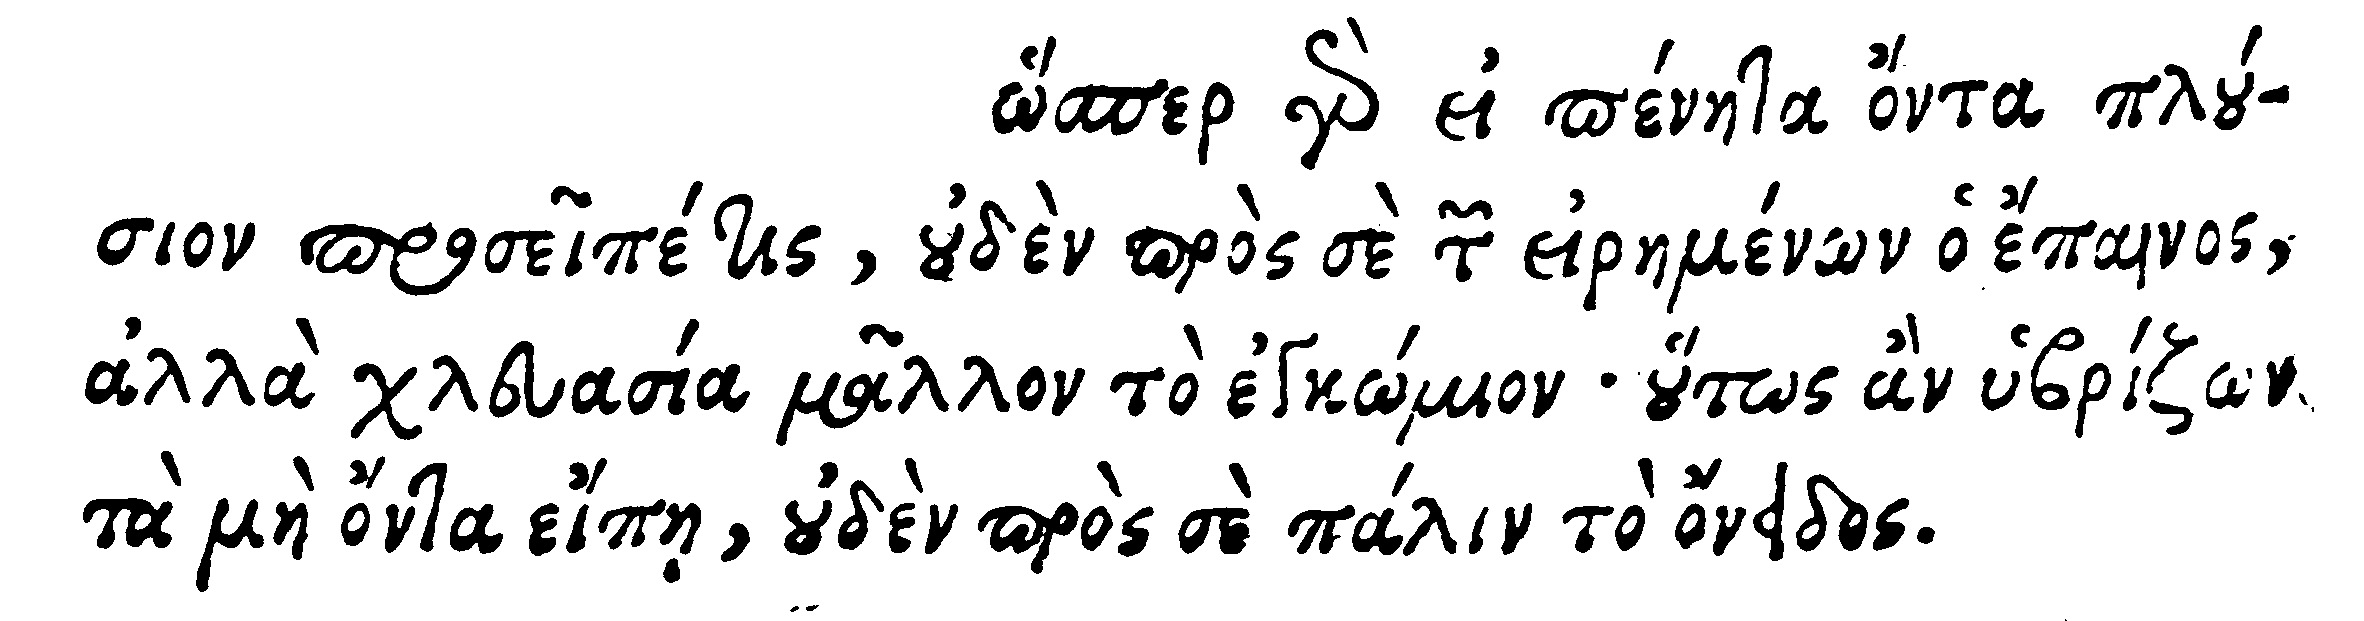 ὥσπερ γὰρ εἰ πένητα ὄντα πλού-
σιον προσεῖπέ τις, οὐδὲν πρὸς σὲ τῶν εἰρημένων ὁ ἔπαινος,
ἀλλὰ χλευασία μᾶλλον τὸ ἐγκώμιον· οὕτως ἂν ὑβρίζων
τὰ μὴ ὄντα εἴπῃ, οὐδὲν πρὸς σὲ πάλιν τὸ ὄνειδος.